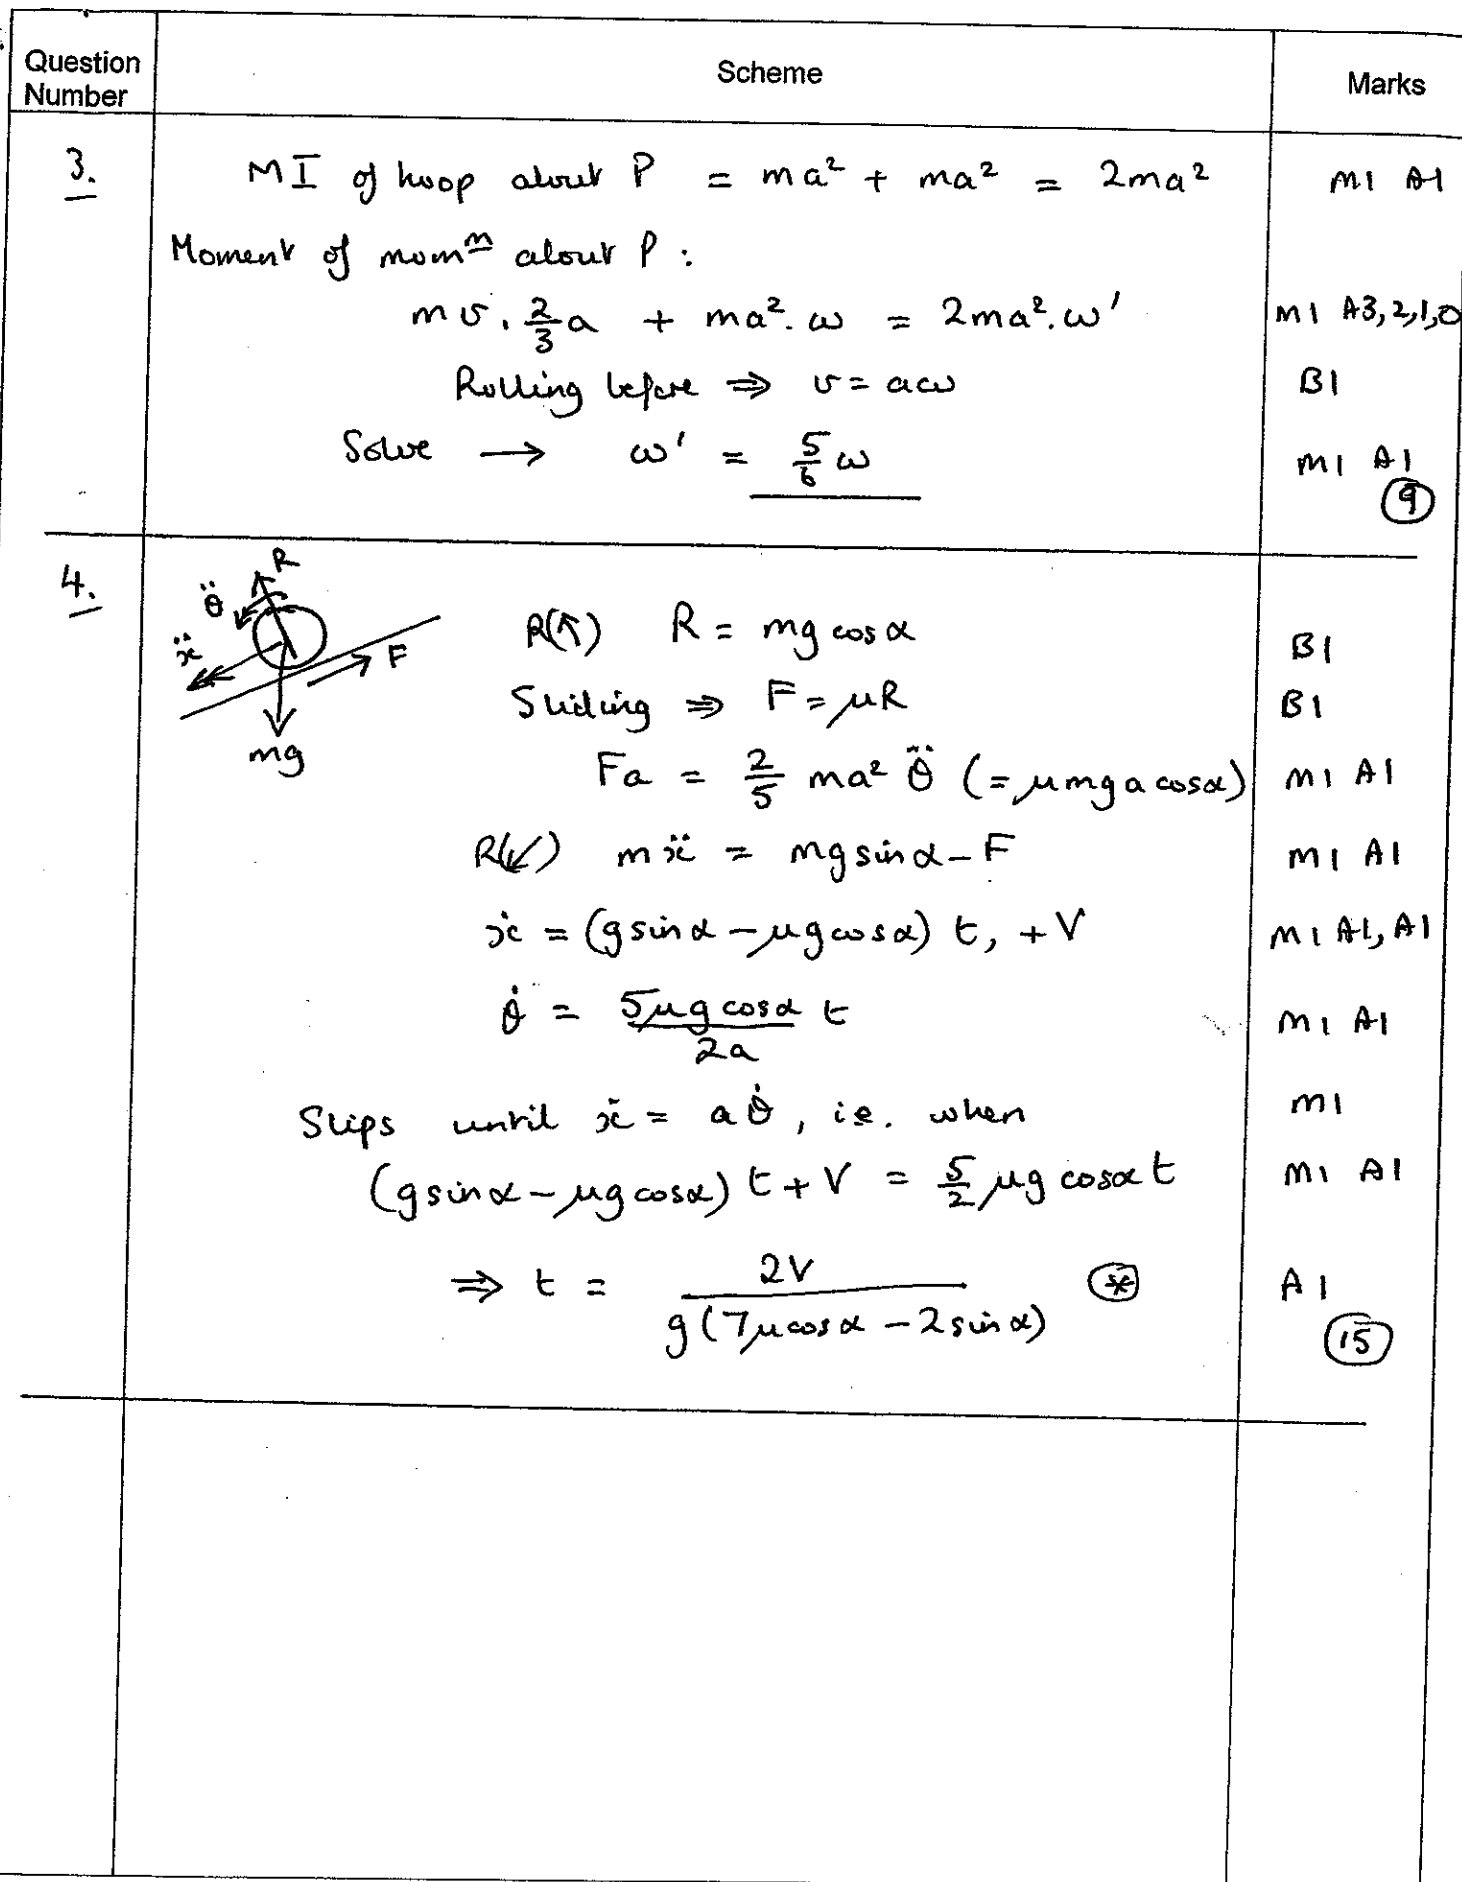 Question Number Scheme Marks
3. MI of hoop about P = ma² + ma² = 2ma² M1 A1
Moment of momᵐ about P :
mv. 2/3 a + ma². ω = 2ma². ω' M1 A3,2,1,0
Rolling before ⇒ v = aω B1
Solve → ω' = 5/6 ω M1 A1
(9)
4. R
θ̈
ẍ
F
mg
R(↖) R = mg cos α B1
Sliding ⇒ F = μR B1
Fa = 2/5 ma² θ̈ (= μmga cosα) M1 A1
R(↙) mẍ = mg sin α − F M1 A1
ẋ = (g sin α − μg cos α) t, + V M1 A1, A1
θ̇ = 5μg cosα/2a t M1 A1
Slips until ẋ = aθ̇, i.e. when M1
(g sin α − μg cosα) t + V = 5/2 μg cosα t M1 A1
⇒ t = 2V/g(7μ cos α − 2 sin α) (*) A1
(15)